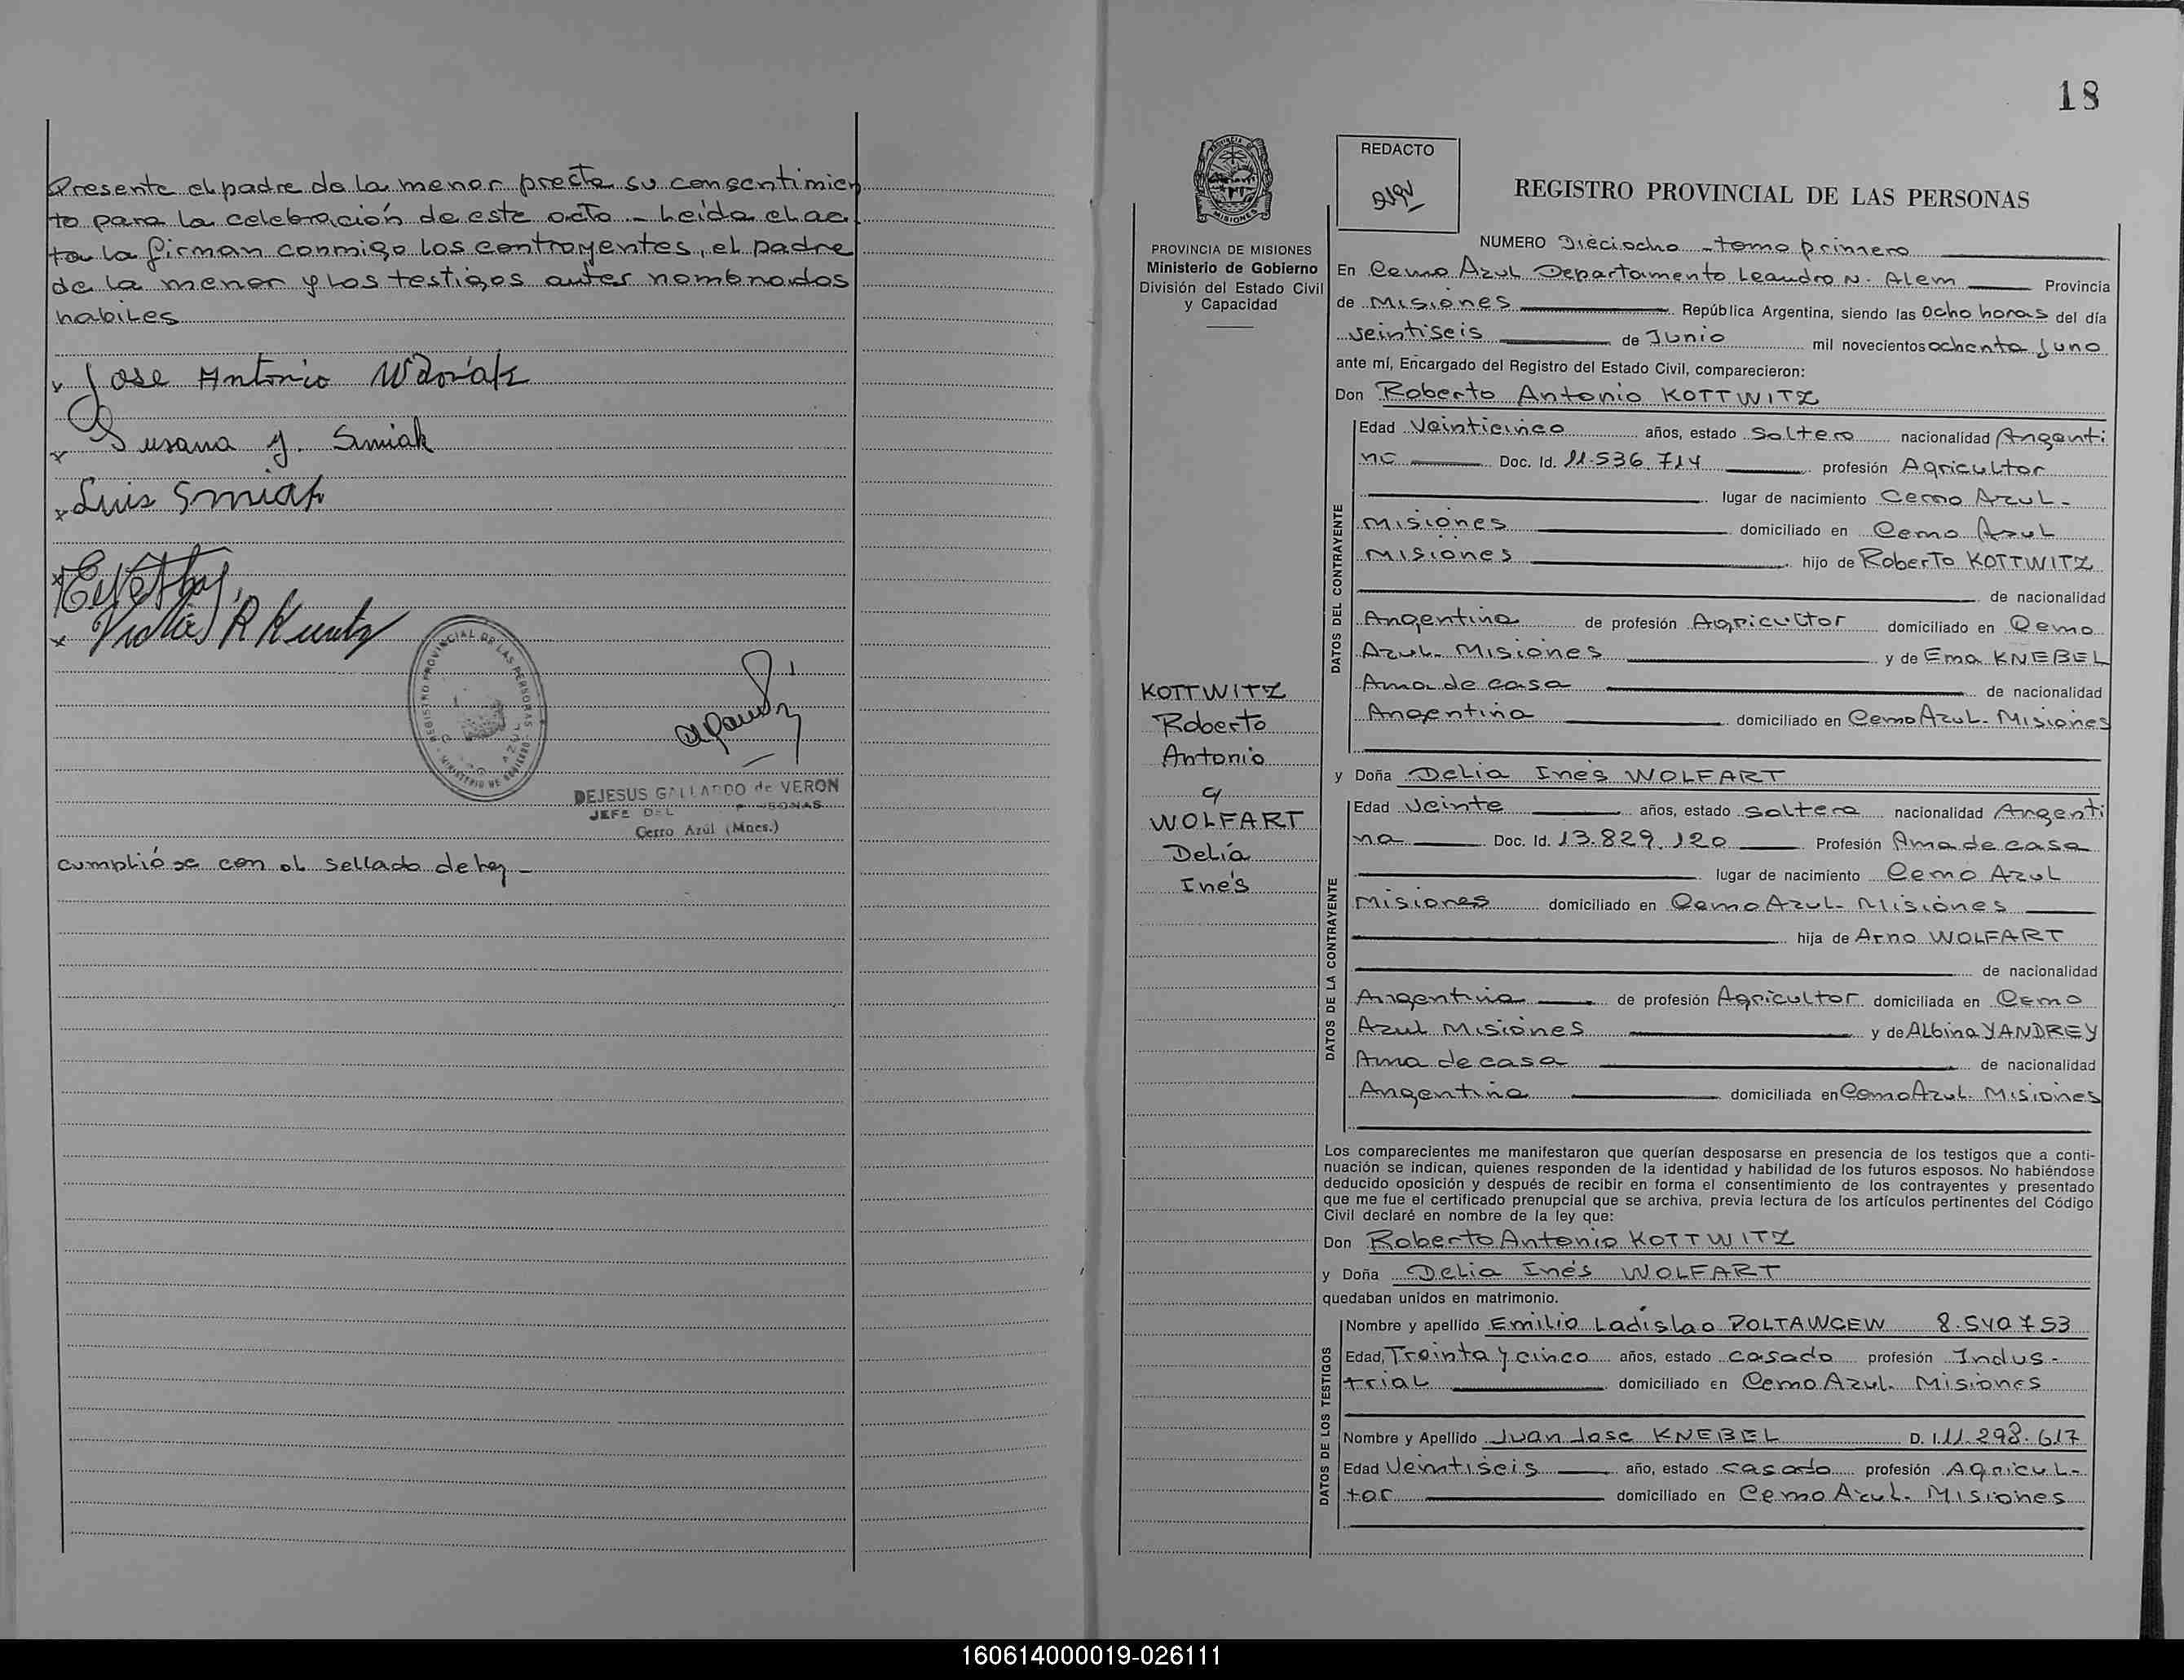 Presente el padre de la menor presta su consentimien
to para la celebración de este acto - Leída el ac
ta la firman conmigo los contrayentes, el padre
de la menor y los testigos antes nombrados
habiles
x Jose Antonio Wdoviak
x Susana J. Smiak
x Luis Smiak
x
x R Kuntz
REGISTRO PROVINCIAL DE LAS PERSONAS
MINISTERIO DE GOBIERNO
DEJESUS GALLARDO de VERON
JEFE DEL
Cerro Azúl (Mnes.)
cumplióse con el sellado de ley -
18
PROVINCIA DE MISIONES
PROVINCIA DE MISIONES
Ministerio de Gobierno
División del Estado Civil
y Capacidad
KOTTWITZ
Roberto
Antonio
y
WOLFART
Delia
Inés
REDACTO
REGISTRO PROVINCIAL DE LAS PERSONAS
NUMERO Dieciocho - tomo primero
En Cerro Azul Departamento Leandro N. Alem Provincia
de Misiones República Argentina, siendo las ocho horas del día
veintiseis de Junio mil novecientos ochenta y uno
ante mí, Encargado del Registro del Estado Civil, comparecieron:
Don Roberto Antonio KOTTWITZ
DATOS DEL CONTRAYENTE
Edad Veinticinco años, estado Soltero nacionalidad Argenti
na Doc. Id. 11.536.714 profesión Agricultor
lugar de nacimiento Cerro Azul-
Misiones domiciliado en Cerro Azul
Misiones hijo de Roberto KOTTWITZ
de nacionalidad
Argentina de profesión Agricultor domiciliado en Cerro
Azul- Misiones y de Ema KNEBEL
Ama de casa de nacionalidad
Argentina domiciliado en Cerro Azul- Misiones
y Doña Delia Inés WOLFART
DATOS DE LA CONTRAYENTE
Edad veinte años, estado soltera nacionalidad Argenti
na Doc. Id. 13.829.120 Profesión Ama de casa
lugar de nacimiento Cerro Azul
Misiones domiciliado en Cerro Azul- Misiones
hija de Arno WOLFART
de nacionalidad
Argentina de profesión Agricultor domiciliada en Cerro
Azul Misiones y de Albina YANDREY
Ama de casa de nacionalidad
Argentina domiciliada en Cerro Azul- Misiones
Los comparecientes me manifestaron que querían desposarse en presencia de los testigos que a conti-
nuación se indican, quienes responden de la identidad y habilidad de los futuros esposos. No habiéndose
deducido oposición y después de recibir en forma el consentimiento de los contrayentes y presentado
que me fue el certificado prenupcial que se archiva, previa lectura de los artículos pertinentes del Código
Civil declaré en nombre de la ley que:
Don Roberto Antonio KOTTWITZ
y Doña Delia Inés WOLFART
quedaban unidos en matrimonio.
DATOS DE LOS TESTIGOS
Nombre y apellido Emilio Ladislao POLTAWCEW 8.540753
Edad, Treinta y cinco años, estado casado profesión Indus-
trial domiciliado en Cerro Azul. Misiones
Nombre y Apellido Juan Jose KNEBEL D. I. 11.298.617
Edad Veintiseis año, estado casado profesión Agricul-
tor domiciliado en Cerro Azul- Misiones
160614000019-026111